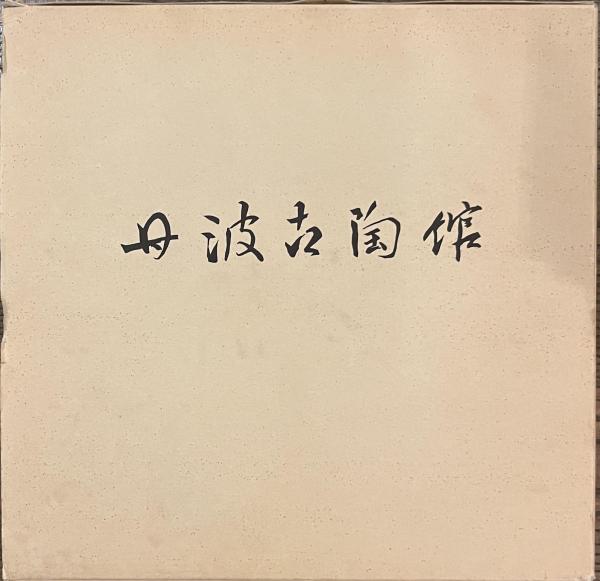 丹波古陶館